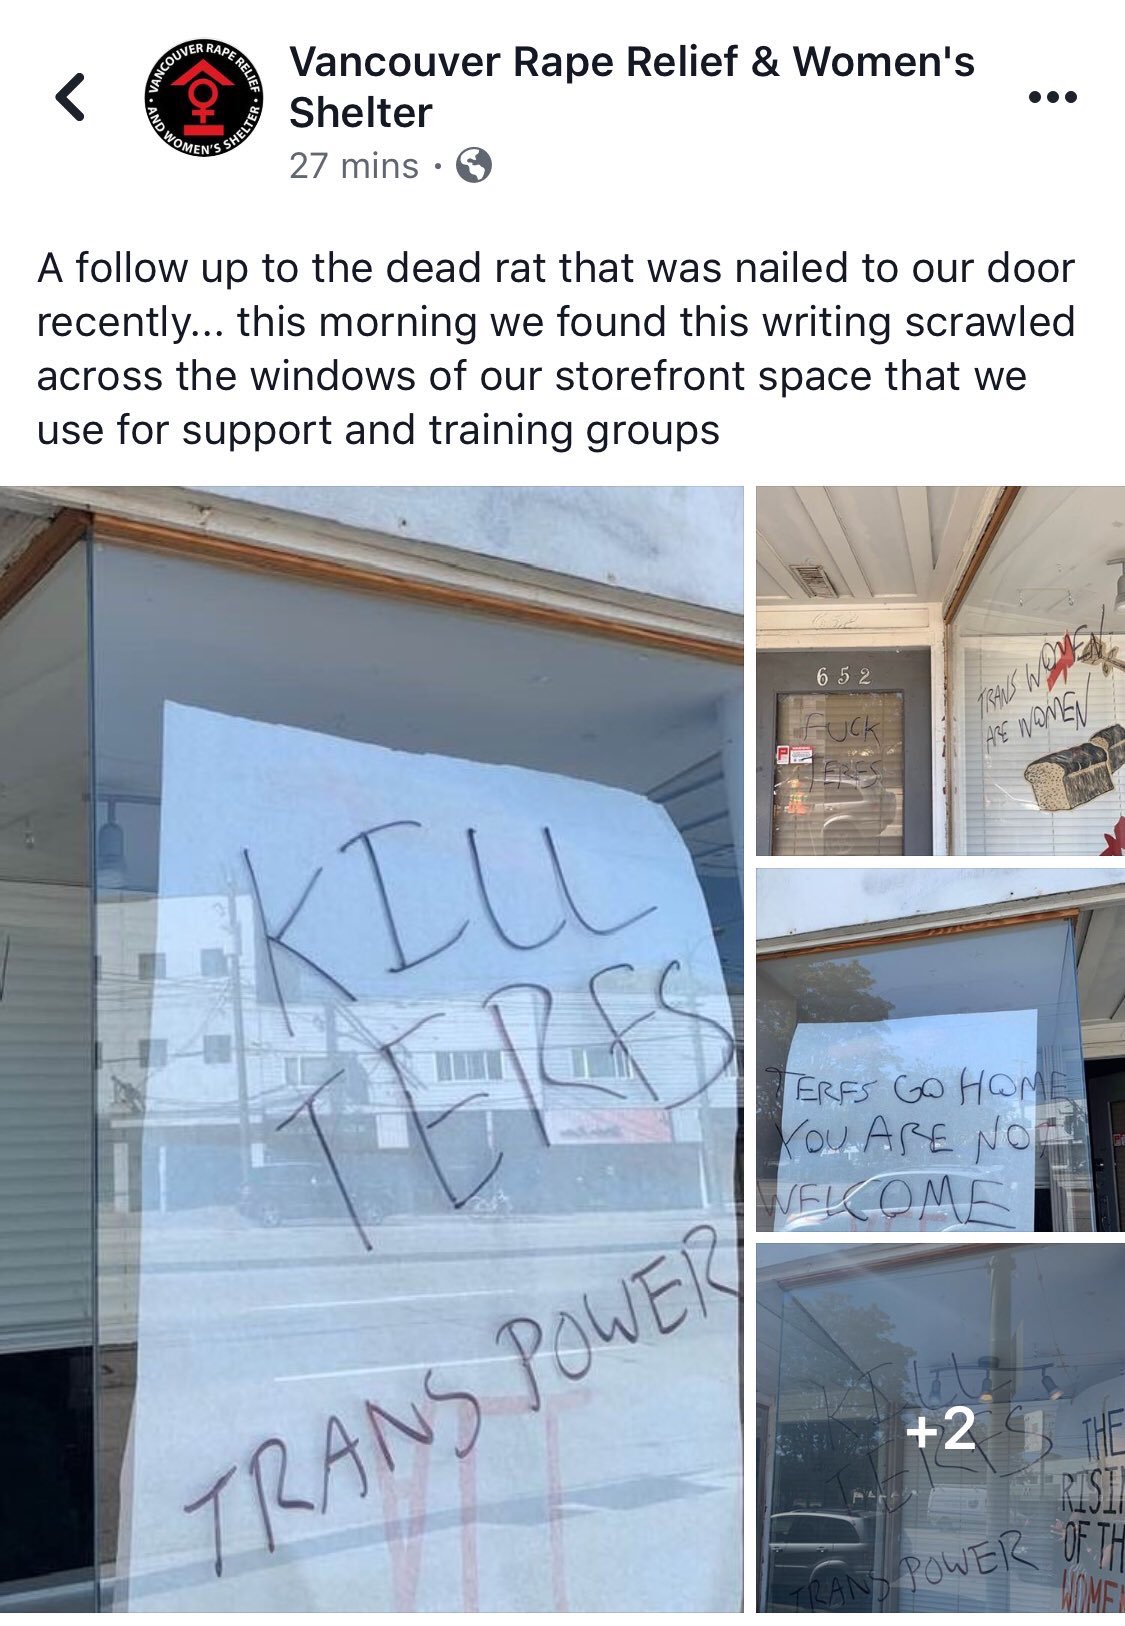 VANCOUVER RAPE RELIEF
AND WOMEN'S SHELTER
Vancouver Rape Relief & Women's
Shelter
27 mins
A follow up to the dead rat that was nailed to our door
recently... this morning we found this writing scrawled
across the windows of our storefront space that we
use for support and training groups
KILL
TERFS
TRANS POWER
652
FUCK
TERFS
TRANS WOMEN
ARE WOMEN
TERFS GO HOME
YOU ARE NOT
WELCOME
KILL
TERFS
TRANS POWER
+2
THE
RISIN
OF TH
WOMEN